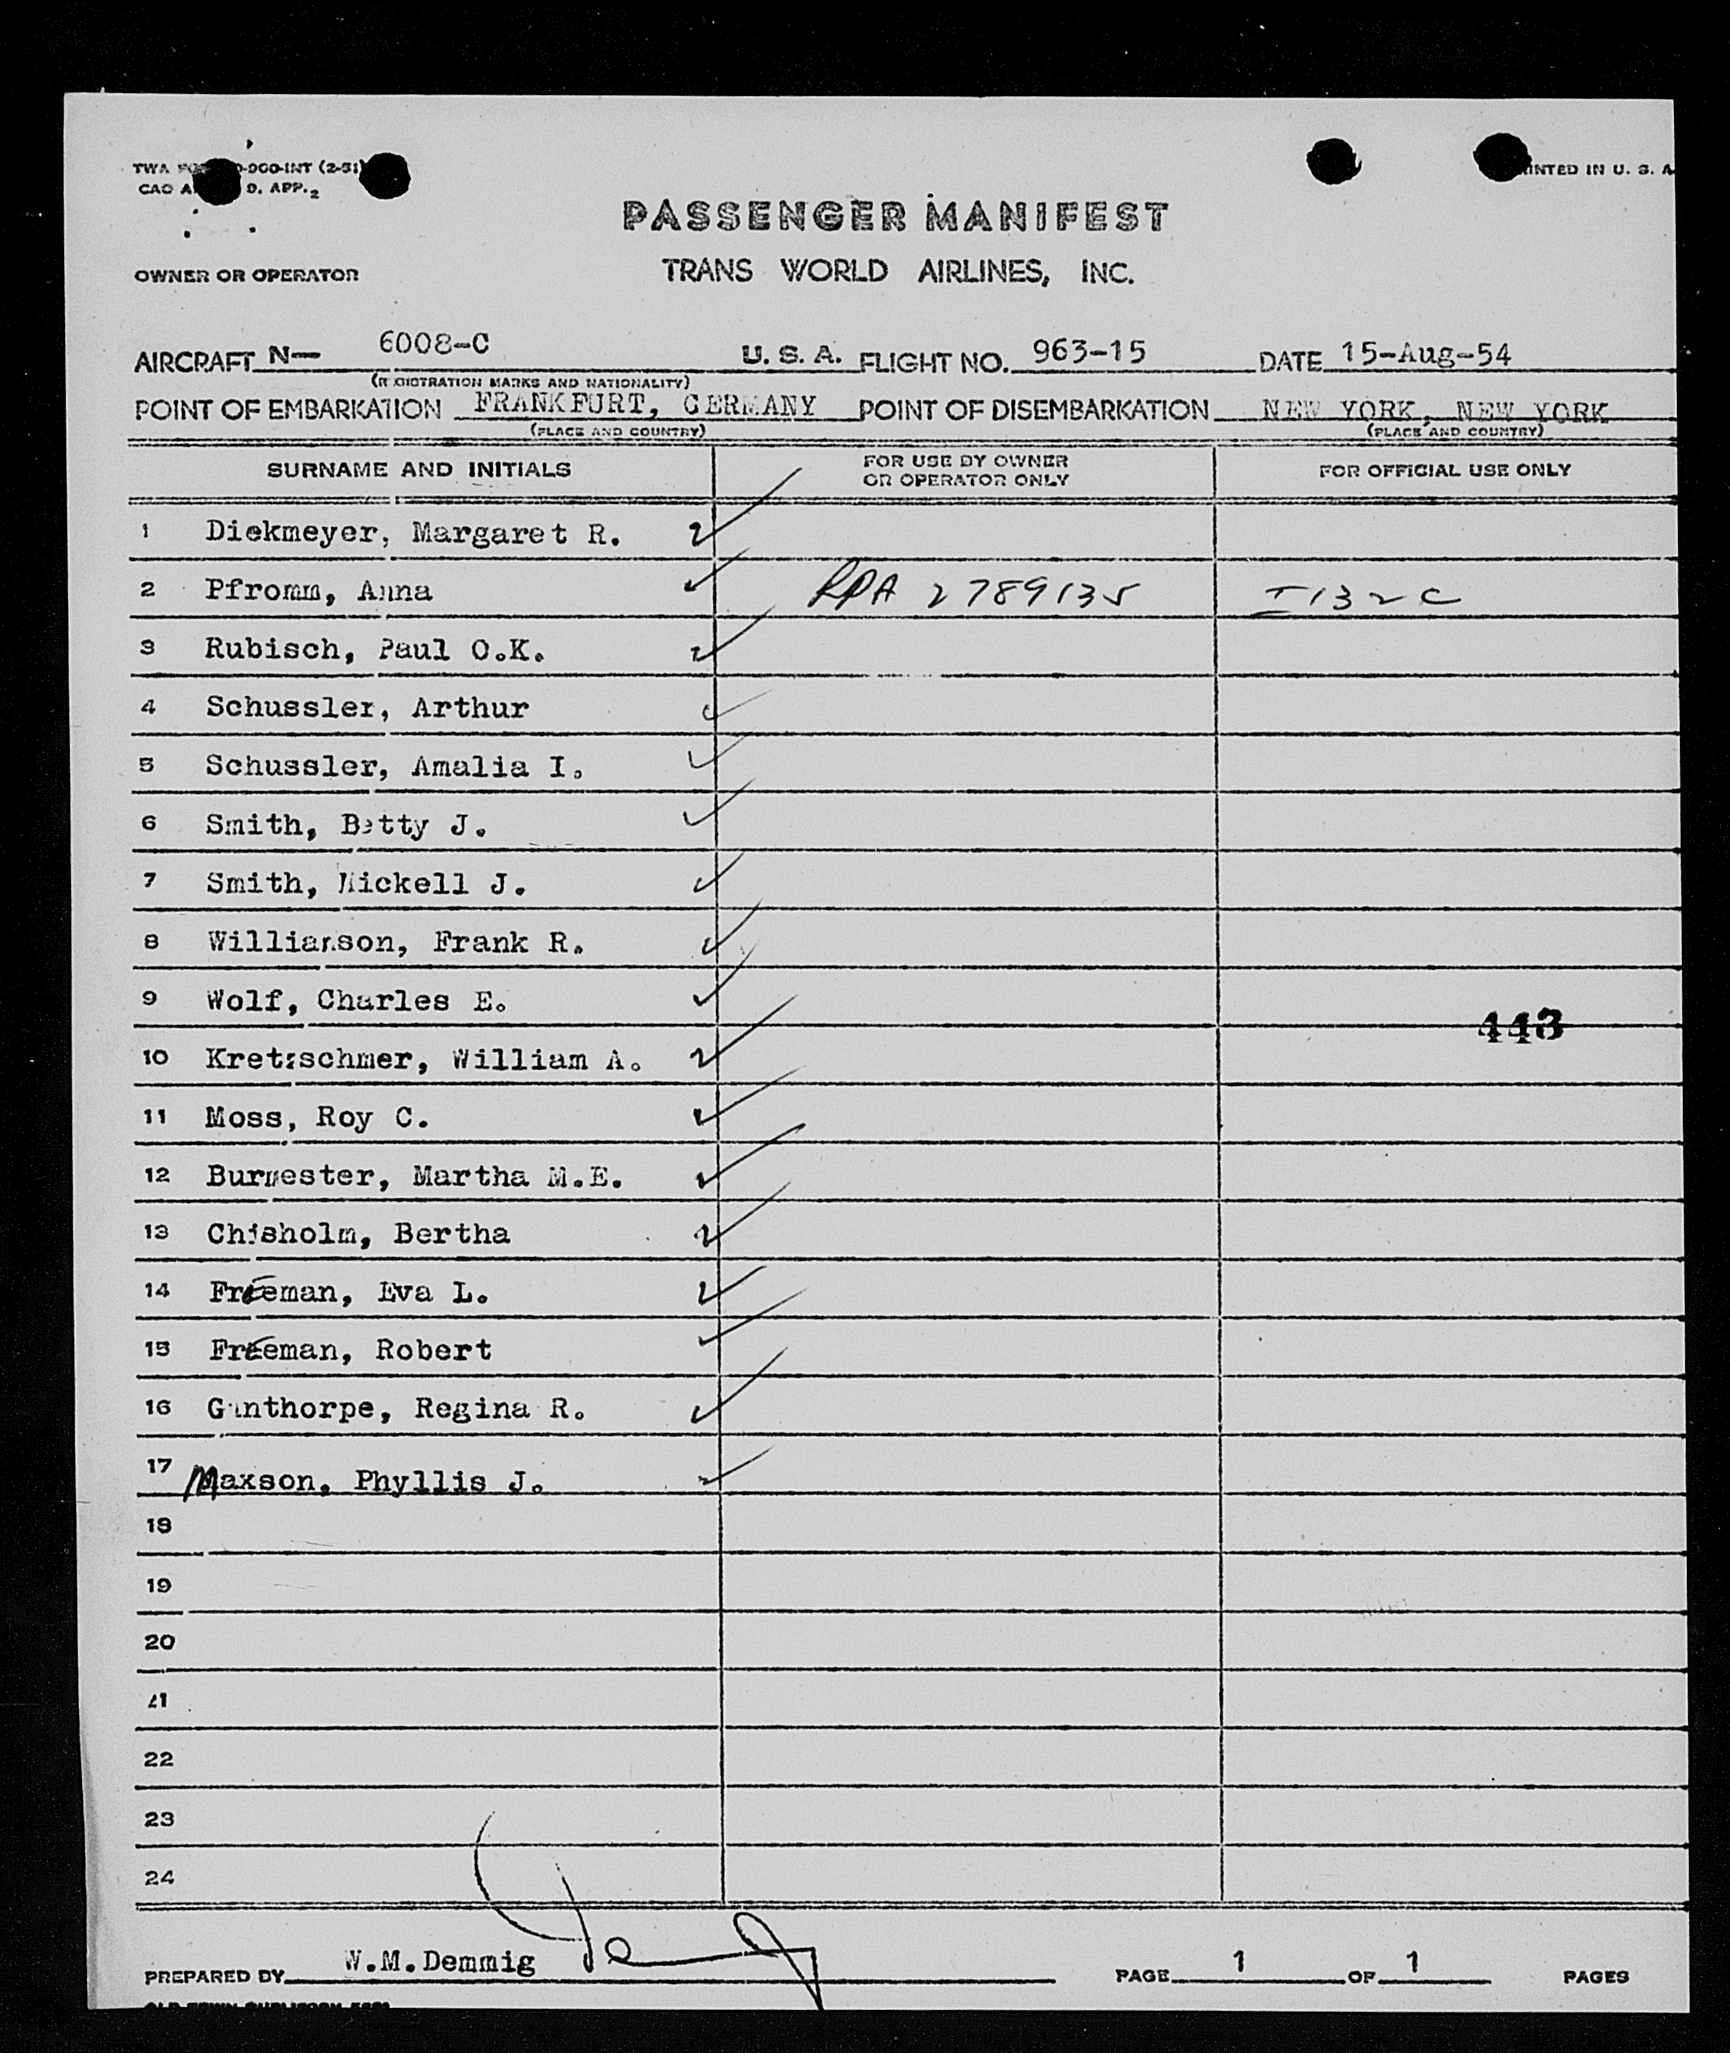 TWA -900-INT (2-51) PRINTED IN U. S. A.
CAO D. APP.2
PASSENGER MANIFEST
OWNER OR OPERATOR TRANS WORLD AIRLINES, INC.
AIRCRAFT N— 6008-C U. S. A. FLIGHT NO. 963-15 DATE 15-Aug-54
(REGISTRATION MARKS AND NATIONALITY)
POINT OF EMBARKATION FRANKFURT, GERMANY POINT OF DISEMBARKATION NEW YORK, NEW YORK
(PLACE AND COUNTRY) (PLACE AND COUNTRY)
SURNAME AND INITIALS FOR USE BY OWNER OR OPERATOR ONLY FOR OFFICIAL USE ONLY
1 Diekmeyer, Margaret R.
2 Pfromm, Anna RPA 2789135 I132C
3 Rubisch, Paul O.K.
4 Schussler, Arthur
5 Schussler, Amalia I.
6 Smith, Betty J.
7 Smith, Mickell J.
8 Williamson, Frank R.
9 Wolf, Charles E.
443
10 Kretzschmer, William A.
11 Moss, Roy C.
12 Burmester, Martha M.E.
13 Chisholm, Bertha
14 Freeman, Eva L.
15 Freeman, Robert
16 Ganthorpe, Regina R.
17 Maxson, Phyllis J.
18
19
20
21
22
23
24
PREPARED BY W.M.Demmig PAGE 1 OF 1 PAGES